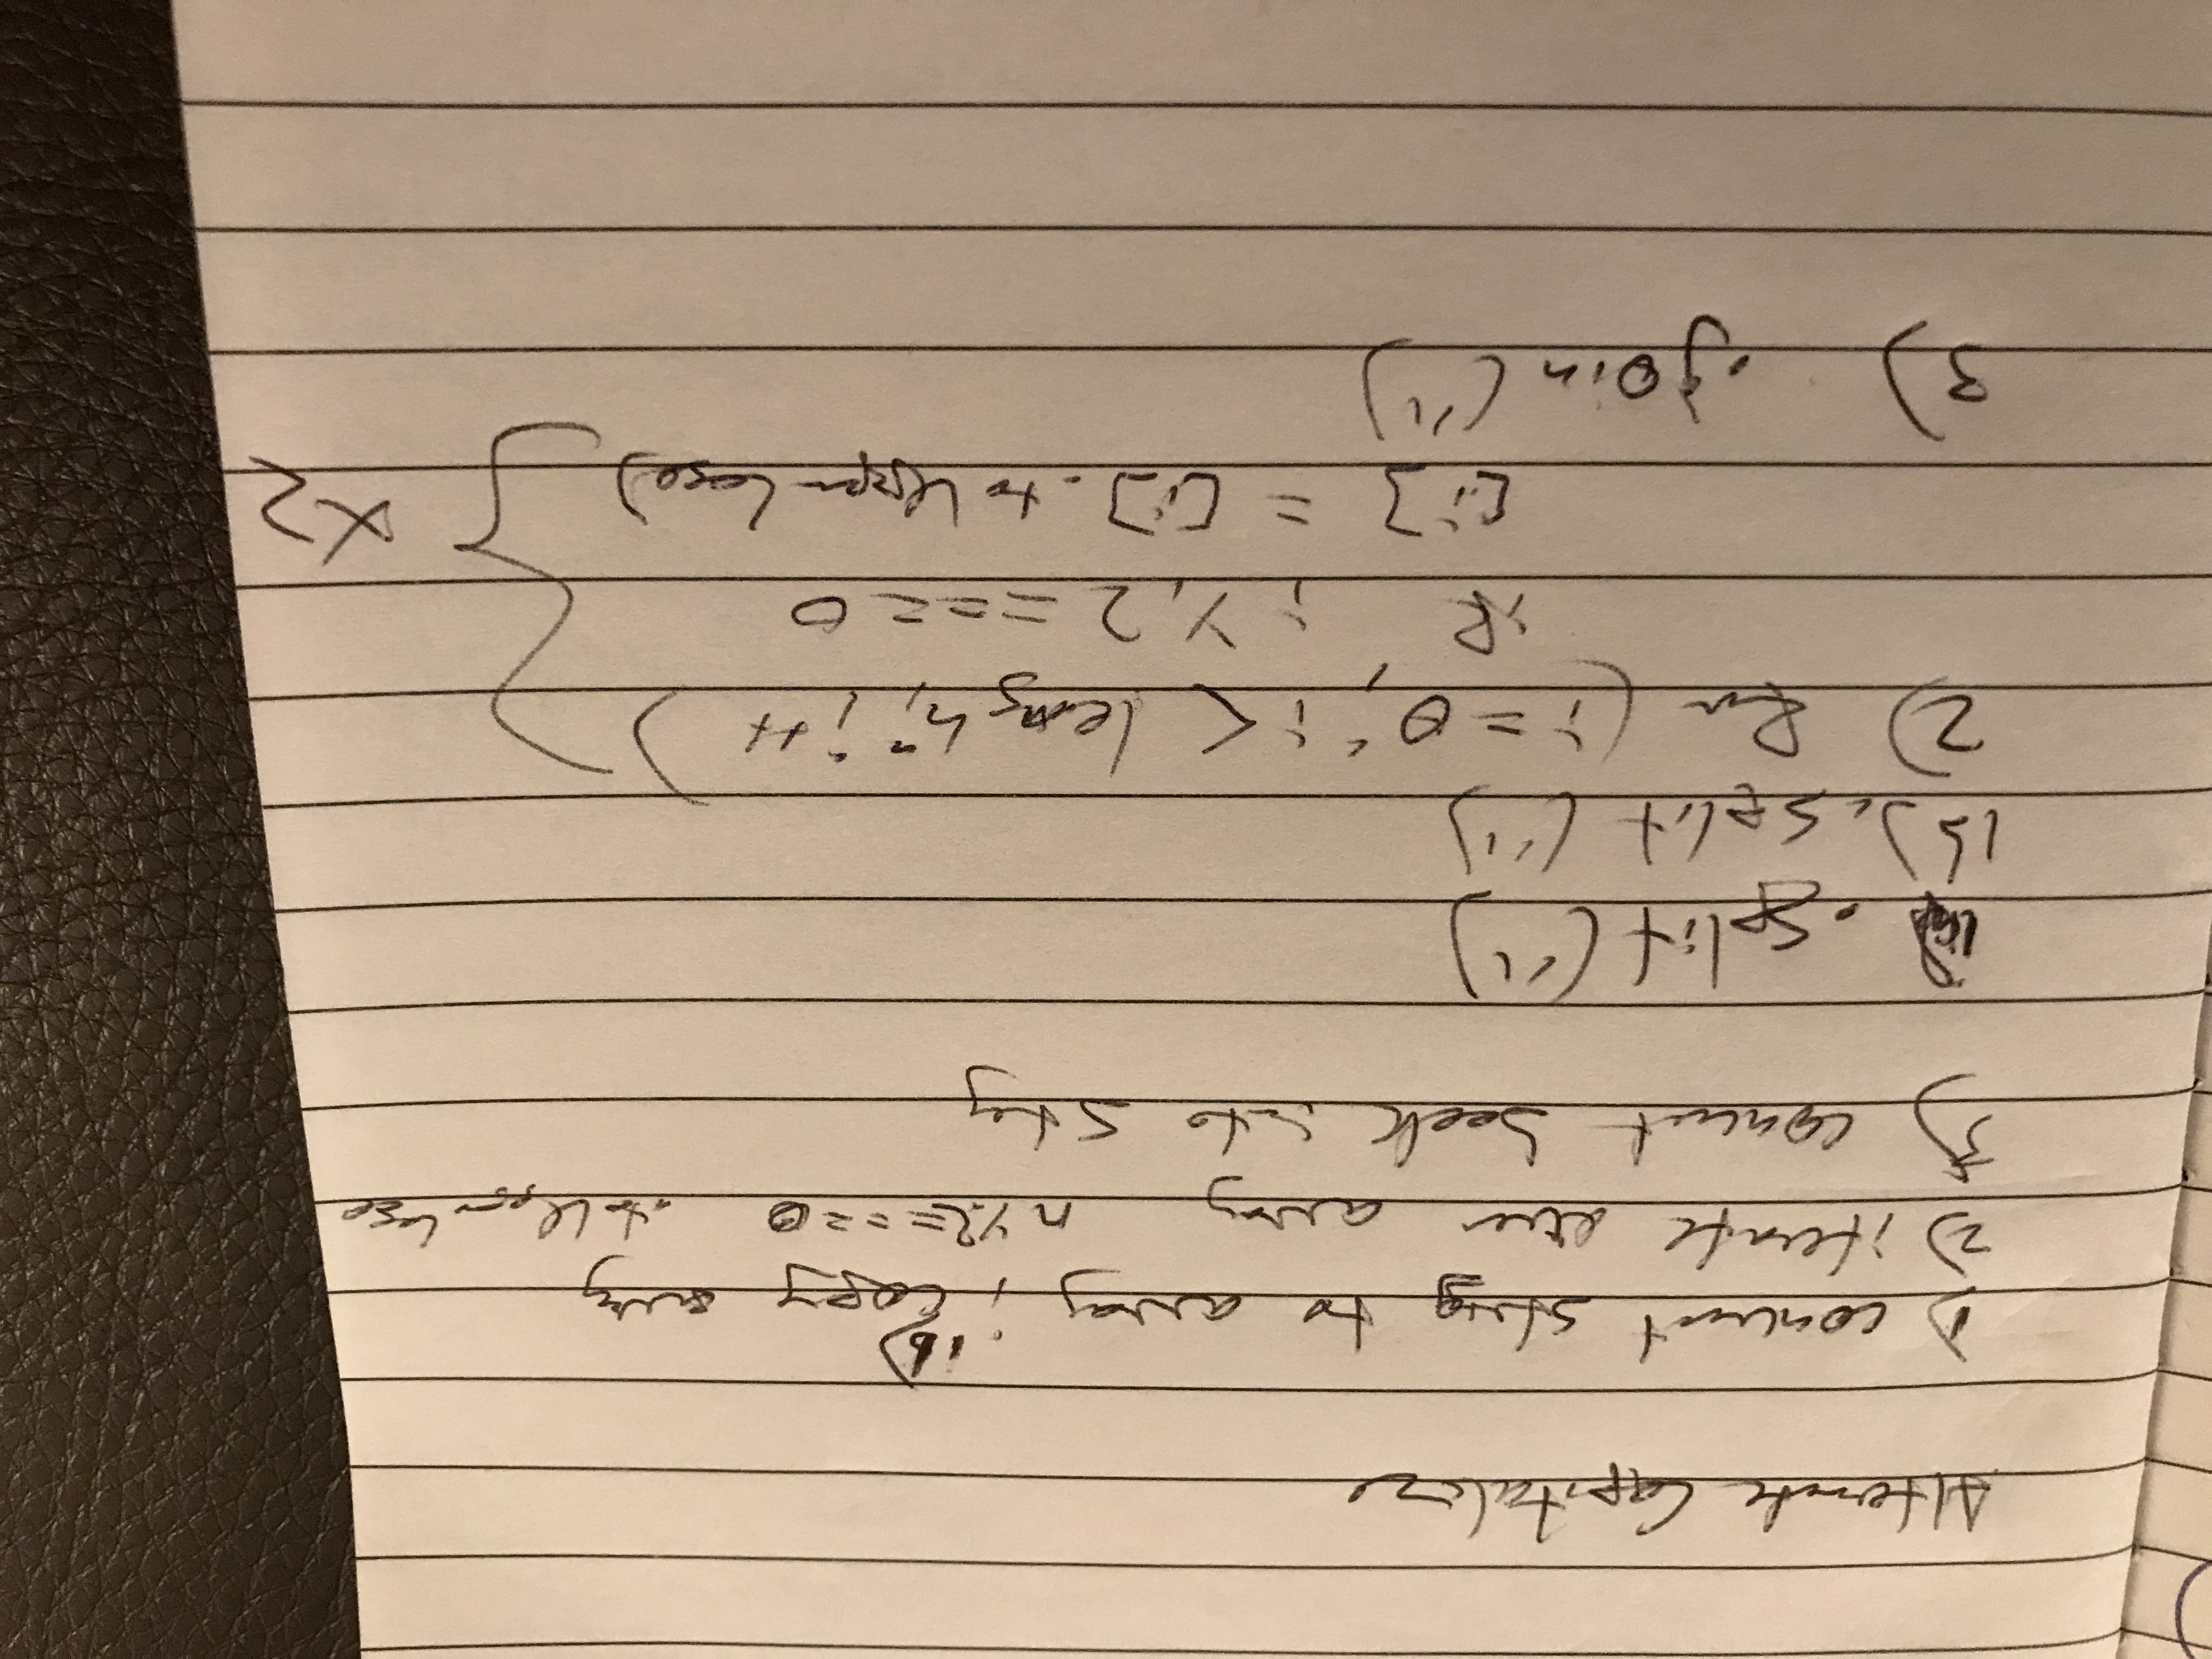 Alternate Capitalize
1) convert string to array; 1b) Copy array
2) iterate over array n%2===0 .toUpperCase
3) convert back into string
1a) .split('')
1b) .split('')
2) for (i=0; i< length; i++)
if i%2===0
[i] = [i].toUpperCase) } x2
3) .join('')